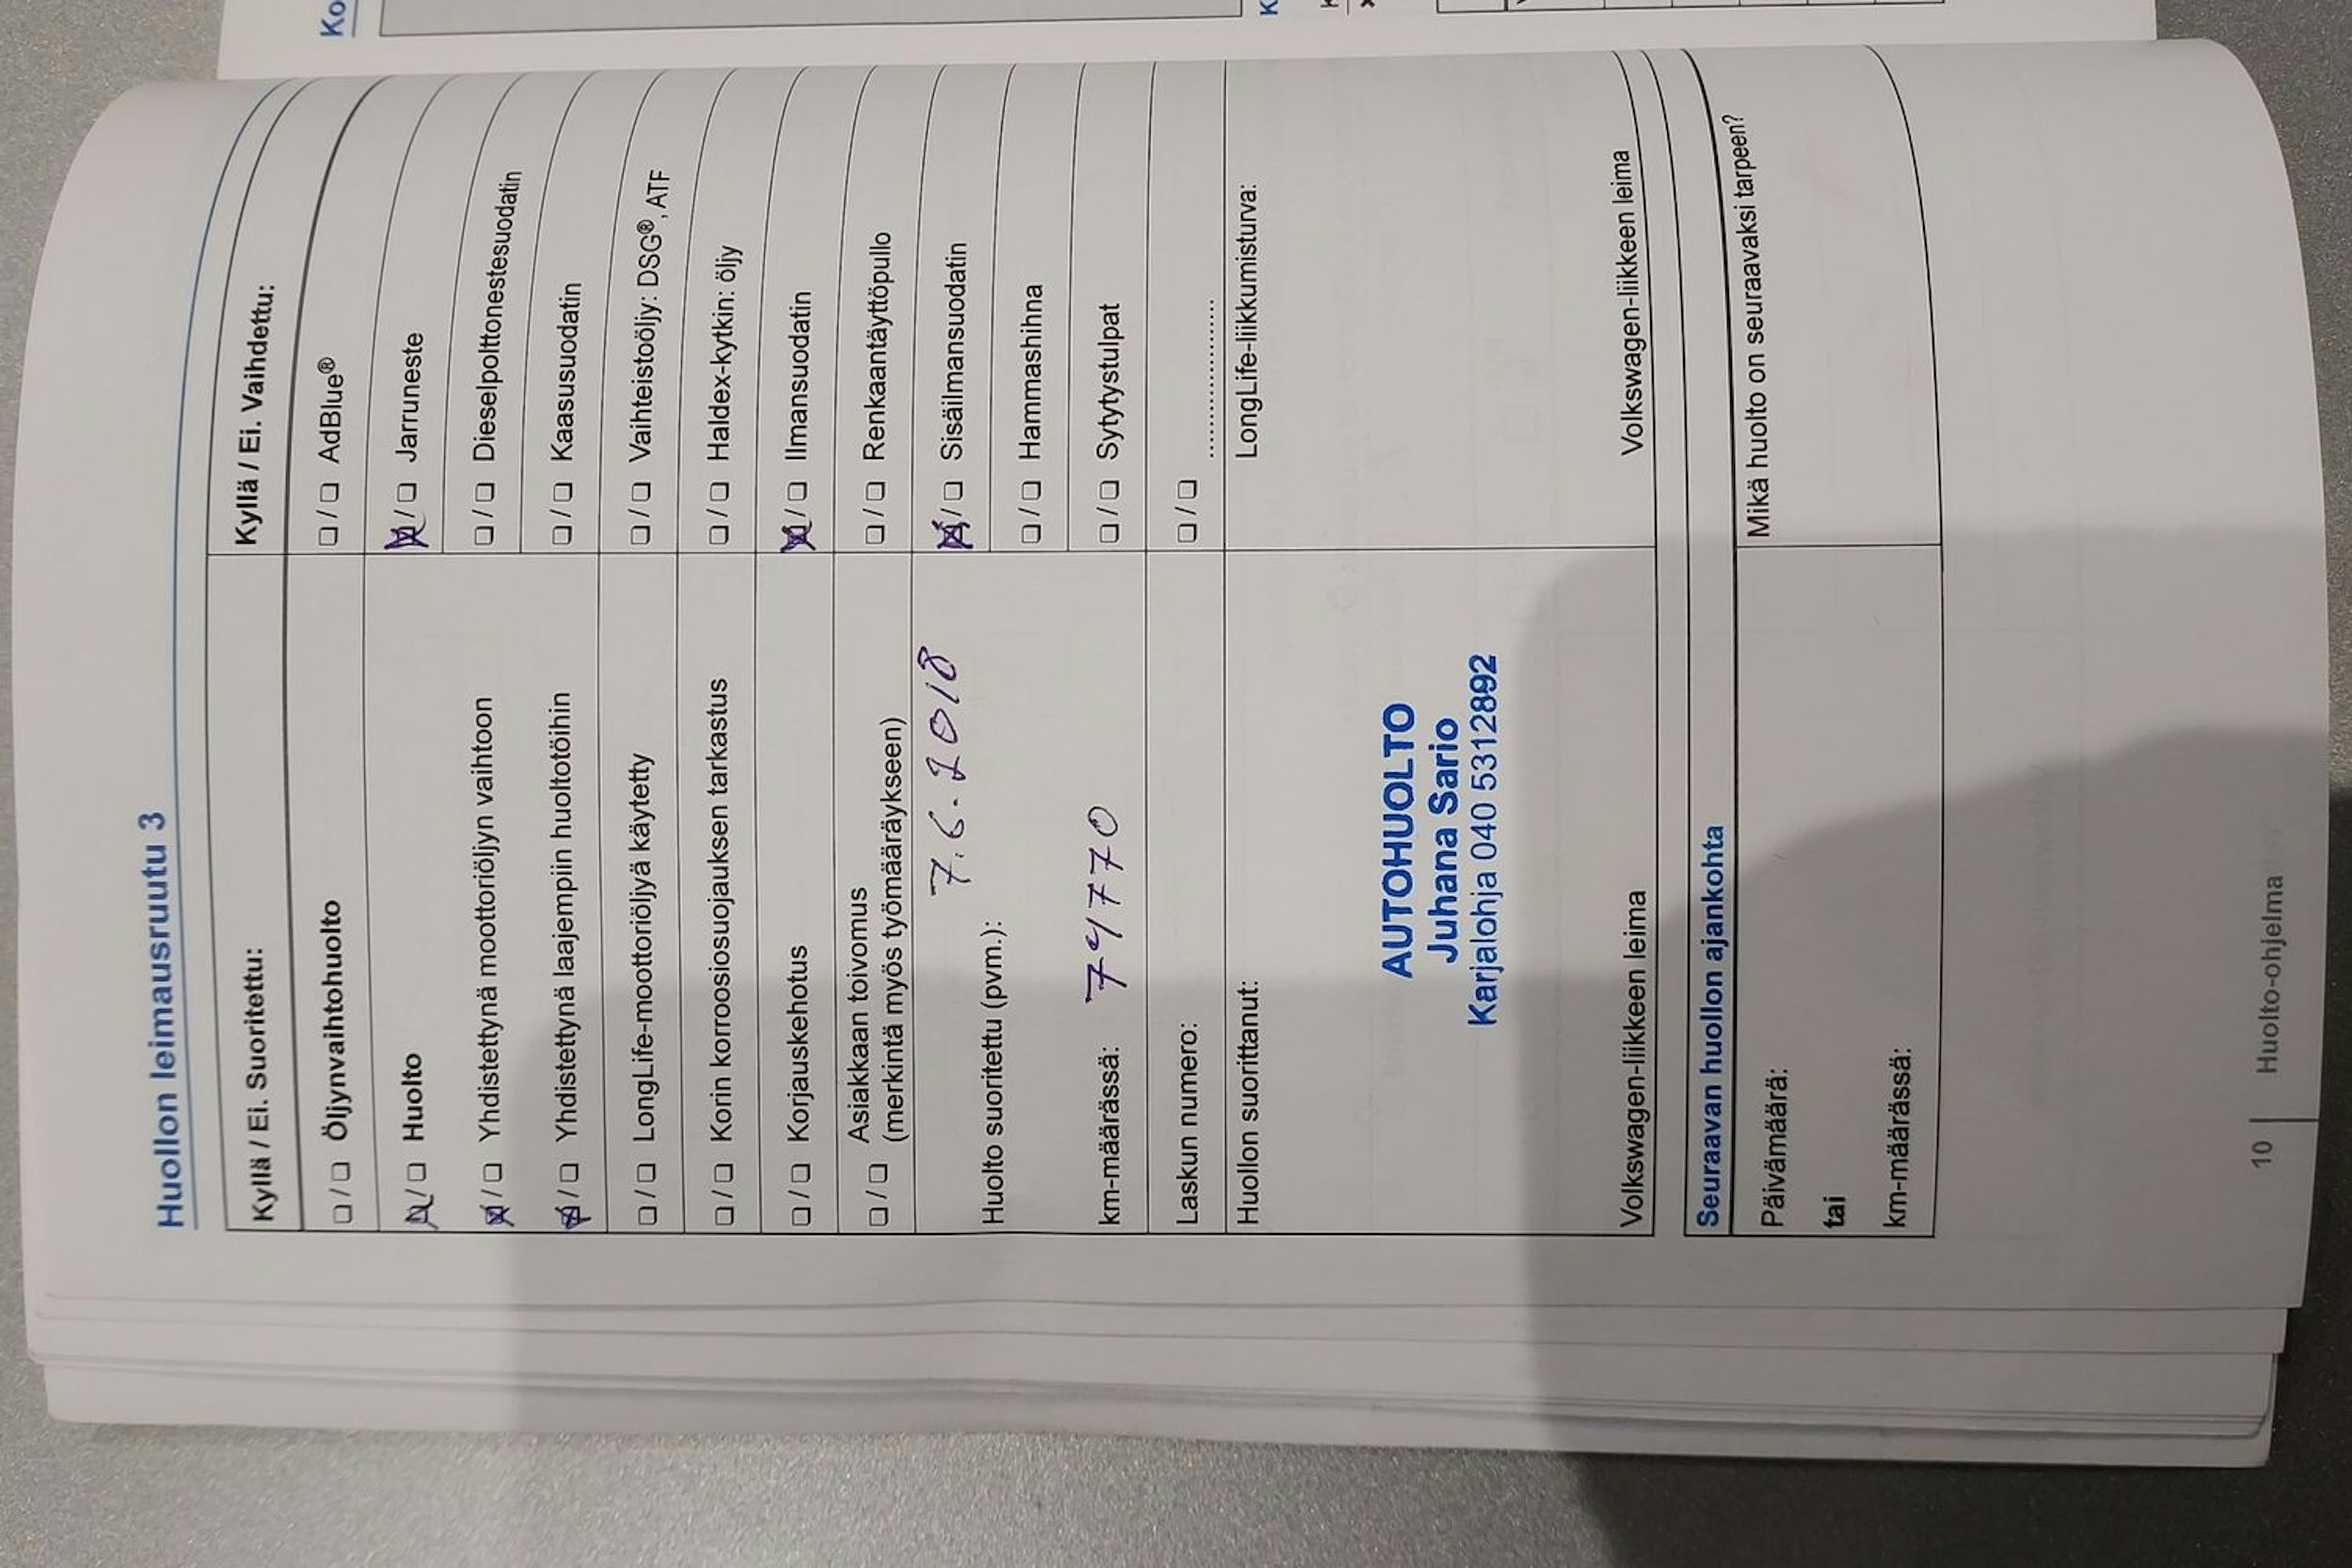 Huollon leimausruutu 3
Kyllä / Ei. Suoritettu:
❏ / ❏ Öljynvaihtohuolto
☒ / ❏ Huolto
☒ / ❏ Yhdistettynä moottoriöljyn vaihtoon
☒ / ❏ Yhdistettynä laajempiin huoltotöihin
❏ / ❏ LongLife-moottoriöljyä käytetty
❏ / ❏ Korin korroosiosuojauksen tarkastus
❏ / ❏ Korjauskehotus
❏ / ❏ Asiakkaan toivomus
(merkintä myös työmääräykseen)
Huolto suoritettu (pvm.): 7.6.2018
km-määrässä: 74770
Laskun numero:
Huollon suorittanut:
AUTOHUOLTO
Juhana Sario
Karjalohja 040 5312892
Volkswagen-liikkeen leima
Kyllä / Ei. Vaihdettu:
❏ / ❏ AdBlue®
☒ / ❏ Jarruneste
❏ / ❏ Dieselpolttonestesuodatin
❏ / ❏ Kaasusuodatin
❏ / ❏ Vaihteistoöljy: DSG®, ATF
❏ / ❏ Haldex-kytkin: öljy
☒ / ❏ Ilmansuodatin
❏ / ❏ Renkaantäyttöpullo
☒ / ❏ Sisäilmansuodatin
❏ / ❏ Hammashihna
❏ / ❏ Sytytystulpat
❏ / ❏ ......................
LongLife-liikkumisturva:
Volkswagen-liikkeen leima
Seuraavan huollon ajankohta
Päivämäärä:
tai
km-määrässä:
Mikä huolto on seuraavaksi tarpeen?
10 Huolto-ohjelma